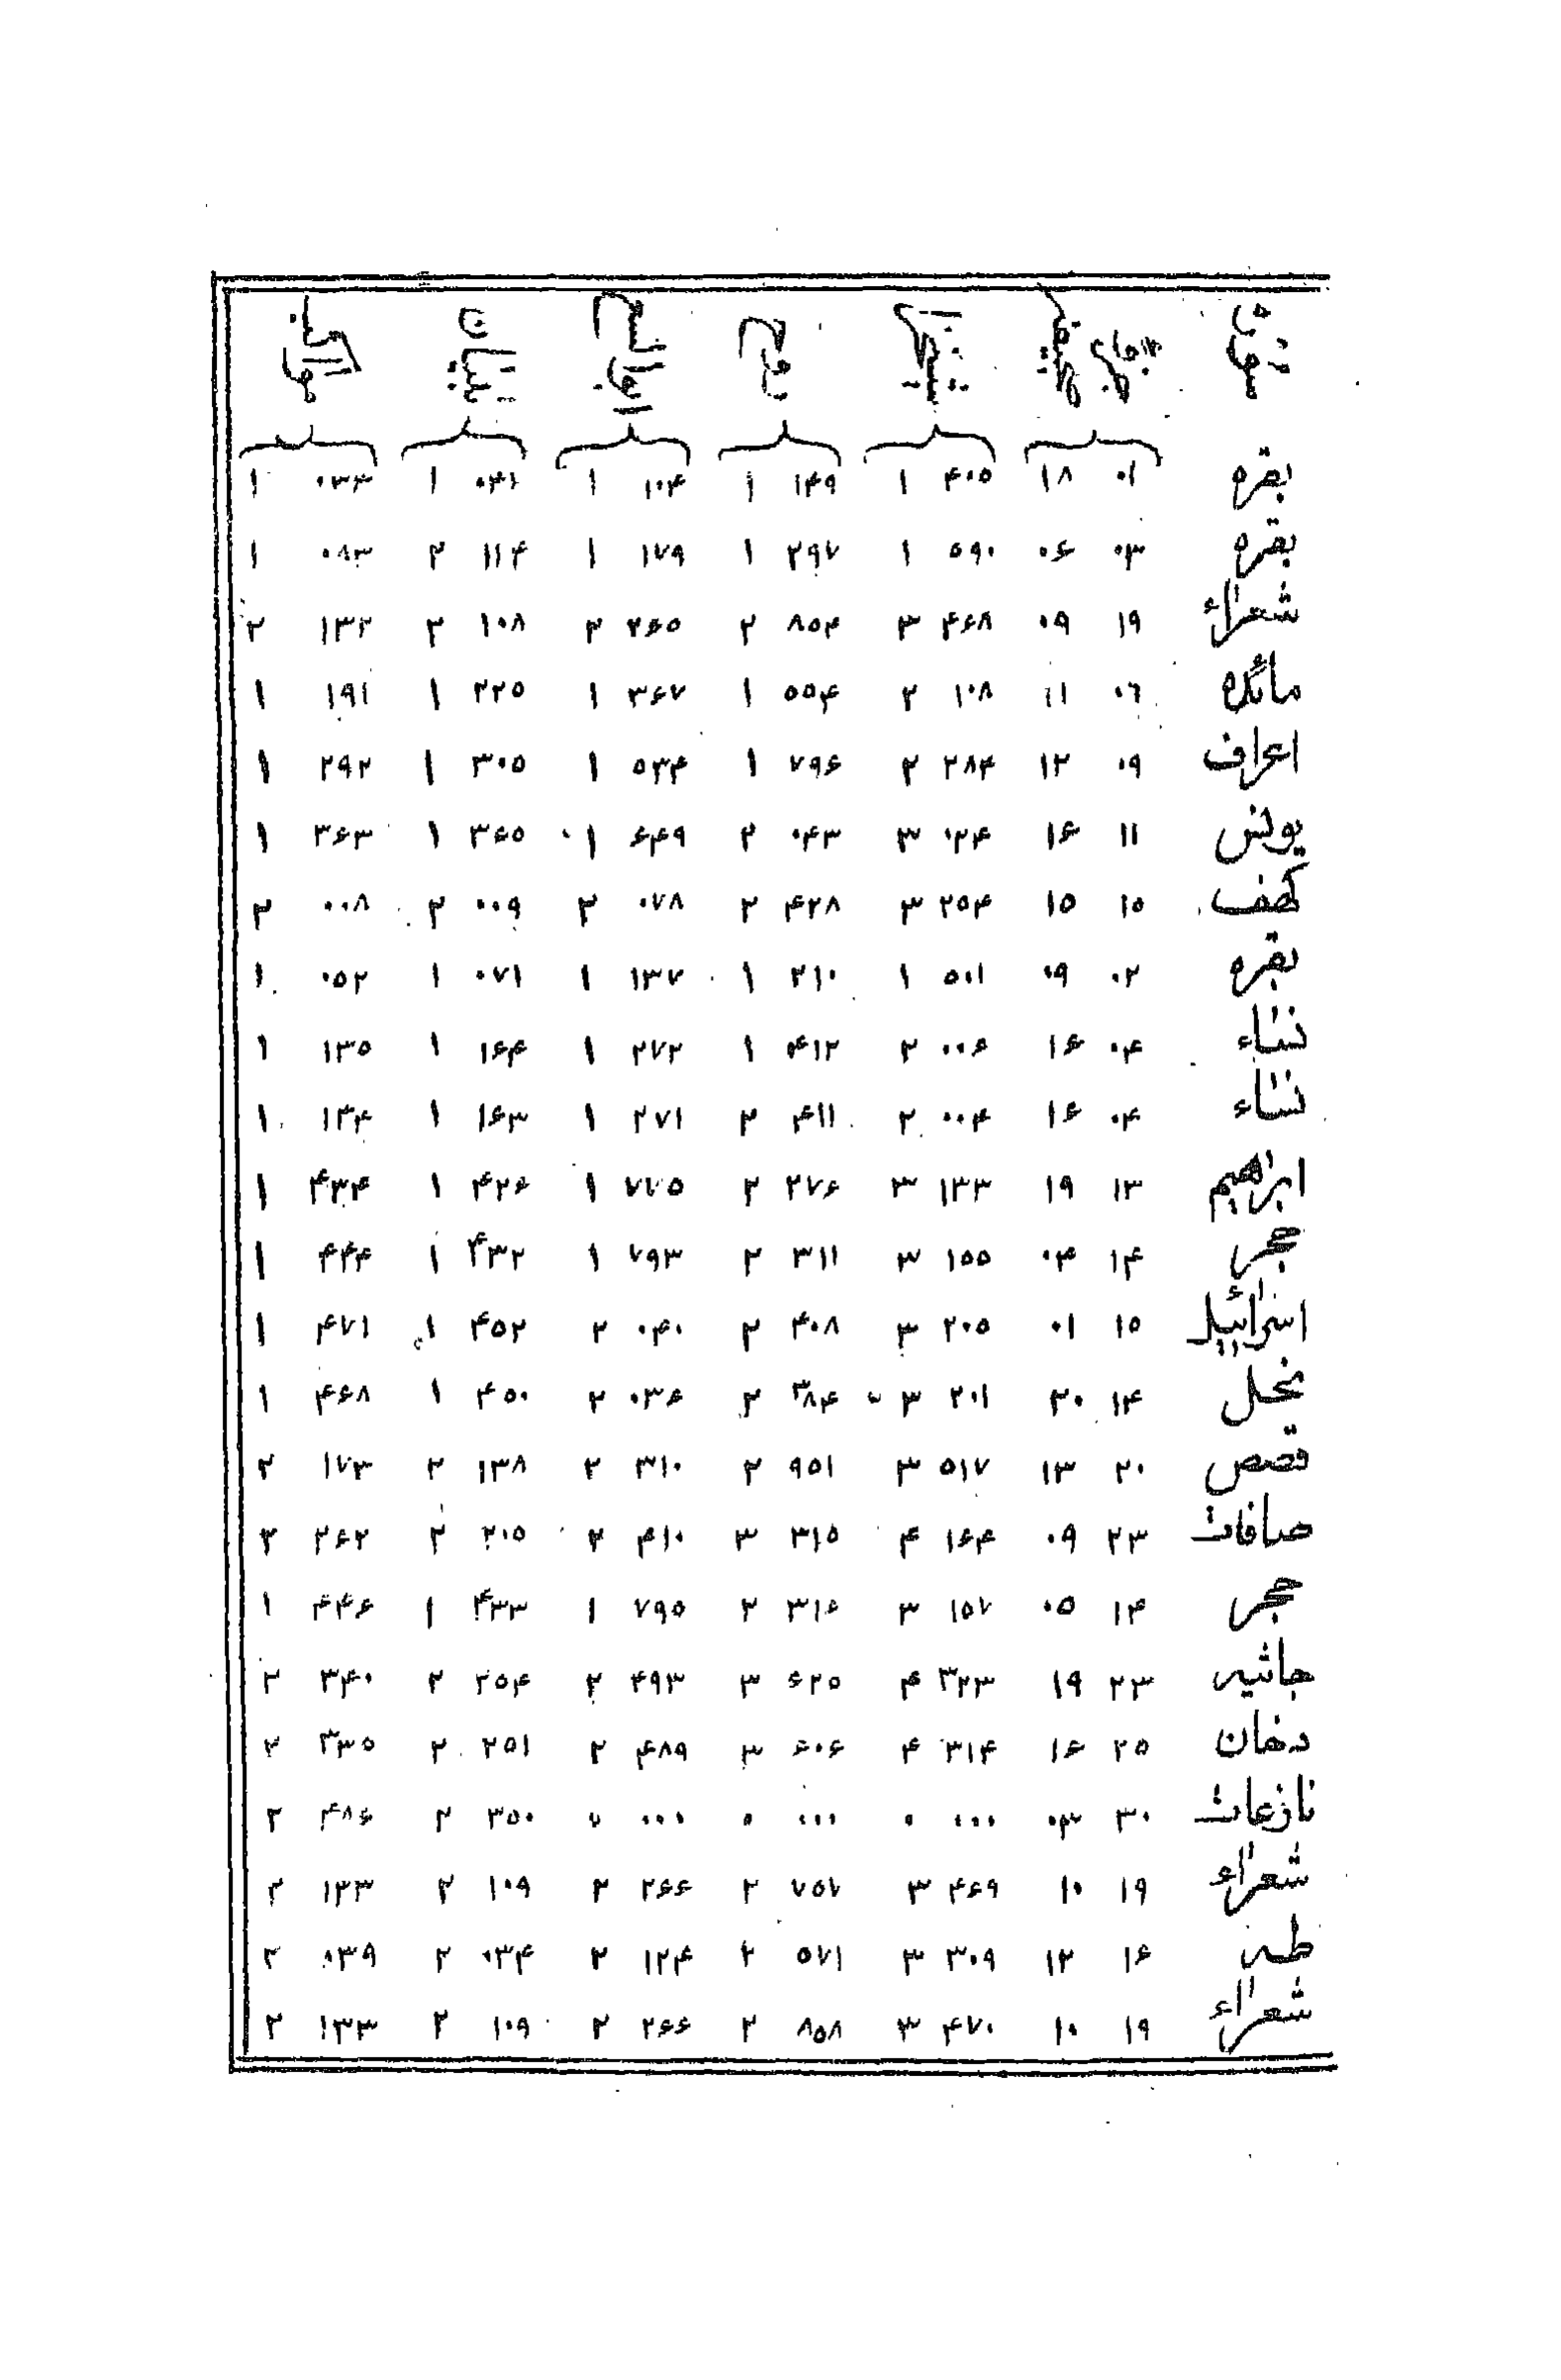 بقره ۰۱ ۱۸ ۴۰۵ ۱ ۱۴۹ ۱ ۱۰۴ ۱ ۰۴۱ ۱ ۰۳۴ ۱
بقره ۰۳ ۰۶ ۵۹۰ ۱ ۲۹۷ ۱ ۱۷۹ ۱ ۱۱۴ ۲ ۰۸۳ ۱
شعراء ۱۹ ۰۹ ۴۶۸ ۳ ۸۵۴ ۲ ۲۶۵ ۲ ۱۰۸ ۲ ۱۳۲ ۲
مائده ۰۶ ۱۱ ۱۰۸ ۲ ۵۵۴ ۱ ۳۶۷ ۱ ۲۲۵ ۱ ۱۹۱ ۱
اعراف ۰۹ ۱۲ ۲۸۴ ۲ ۷۹۶ ۱ ۵۳۴ ۱ ۳۰۵ ۱ ۲۹۲ ۱
یونس ۱۱ ۱۶ ۰۲۴ ۳ ۰۴۳ ۲ ۶۴۹ ۱ ۳۶۵ ۱ ۳۶۳ ۱
کهف ۱۵ ۱۵ ۲۵۴ ۳ ۴۲۸ ۲ ۰۷۸ ۲ ۰۰۹ ۲ ۰۰۸ ۲
بقره ۰۲ ۰۹ ۵۰۱ ۱ ۲۱۰ ۱ ۱۳۷ ۱ ۰۷۱ ۱ ۰۵۲ ۱
نساء ۰۴ ۱۶ ۰۰۶ ۲ ۴۱۲ ۱ ۲۷۲ ۱ ۱۶۴ ۱ ۱۳۵ ۱
نساء ۰۴ ۱۶ ۰۰۴ ۲ ۴۱۱ ۲ ۲۷۱ ۱ ۱۶۳ ۱ ۱۳۴ ۱
ابراهیم ۱۳ ۱۹ ۱۳۳ ۳ ۲۷۶ ۲ ۷۷۵ ۱ ۴۲۶ ۱ ۴۳۴ ۱
حجر ۱۴ ۰۴ ۱۵۵ ۳ ۳۱۱ ۲ ۷۹۳ ۱ ۴۳۲ ۱ ۴۴۴ ۱
اسرائیل ۱۵ ۰۱ ۲۰۵ ۳ ۴۰۸ ۲ ۰۴۰ ۲ ۴۵۲ ۱ ۴۷۱ ۱
نحل ۱۴ ۲۰ ۲۰۱ ۳ ۳۸۴ ۲ ۰۳۶ ۲ ۴۵۰ ۱ ۴۶۸ ۱
قصص ۲۰ ۱۳ ۵۱۷ ۳ ۹۵۱ ۲ ۳۱۰ ۲ ۱۳۸ ۲ ۱۷۳ ۲
صافات ۲۳ ۰۹ ۱۶۴ ۴ ۳۱۵ ۳ ۴۱۰ ۲ ۲۰۵ ۲ ۲۶۲ ۲
حجر ۱۴ ۰۵ ۱۵۷ ۳ ۳۱۶ ۲ ۷۹۵ ۱ ۴۳۳ ۱ ۴۴۶ ۱
جاثیه ۲۳ ۱۹ ۳۲۳ ۴ ۶۲۵ ۳ ۴۹۳ ۲ ۲۵۴ ۲ ۳۴۰ ۲
دخان ۲۵ ۱۶ ۳۱۴ ۴ ۶۰۶ ۳ ۴۸۹ ۲ ۲۵۱ ۲ ۳۳۵ ۲
نازعات ۳۰ ۰۳ ۰۰۰ ۰ ۰۰۰ ۰ ۰۰۰ ۰ ۳۵۰ ۲ ۴۸۶ ۲
شعراء ۱۹ ۱۰ ۴۶۹ ۳ ۷۵۷ ۲ ۲۶۶ ۲ ۱۰۹ ۲ ۱۳۳ ۲
طه ۱۶ ۱۲ ۳۰۹ ۳ ۵۷۱ ۲ ۱۲۴ ۲ ۰۳۴ ۲ ۰۳۹ ۲
شعراء ۱۹ ۱۰ ۴۷۰ ۳ ۸۵۸ ۲ ۲۶۶ ۲ ۱۰۹ ۲ ۱۳۳ ۲